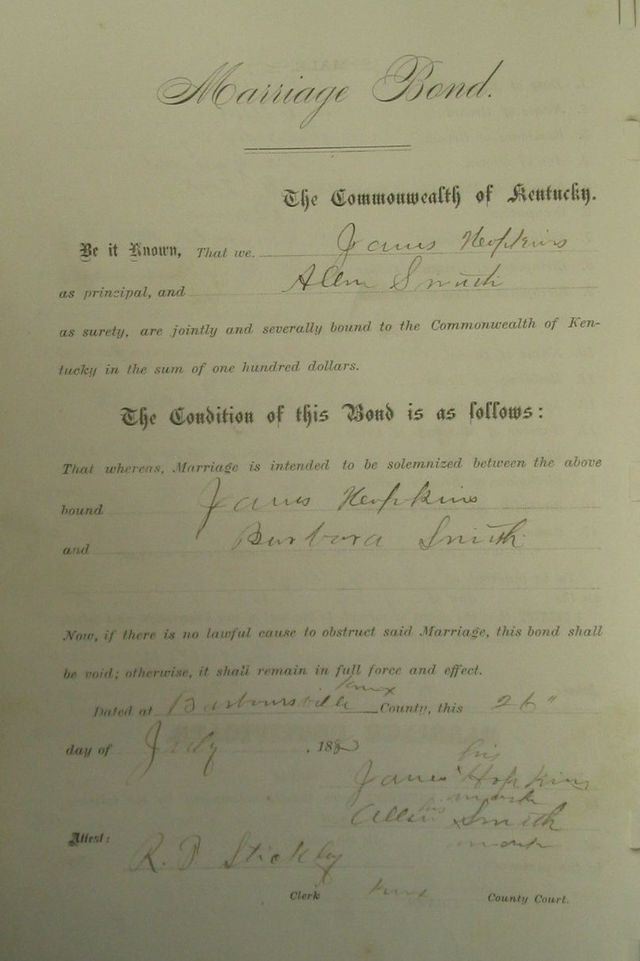 Marriage Bond.
The Commonwealth of Kentucky.
Be it Known, That we James Hopkins
as principal, and Allen Smith
as surety, are jointly and severally bound to the Commonwealth of Ken-
tucky in the sum of one hundred dollars.
The Condition of this Bond is as follows:
That whereas, Marriage is intended to be solemnized between the above
bound James Hopkins
and Barbara Smith
Now, if there is no lawful cause to obstruct said Marriage, this bond shall
be void; otherwise, it shall remain in full force and effect.
Dated at Barboursville Knox County, this 26"
day of July , 188
his
James Hopkins
mark
Allen his Smith
mark
Attest: R. P. Stickley
Clerk Knox County Court.